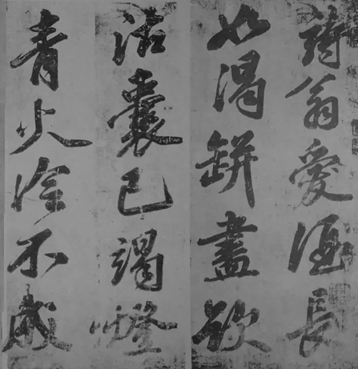 詩翁愛酒長
如渴缾盡欲
沽囊已竭燈
青火冷不成